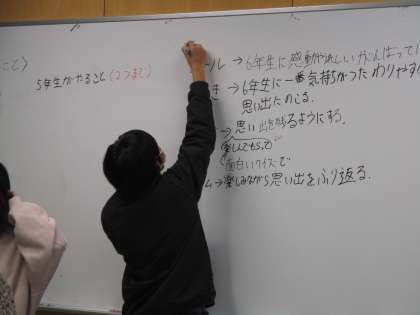 こと〉
5年生がやること(2つまで)
ール→6年生に感動がうれしいがんばって
き→6年生に一番気持ちがつたわりやすい
思い出たのこる。
→思い出をさるようにする。
楽しんでもらって
面白いクイズで
ム→楽しみながら思い出をふり返る。